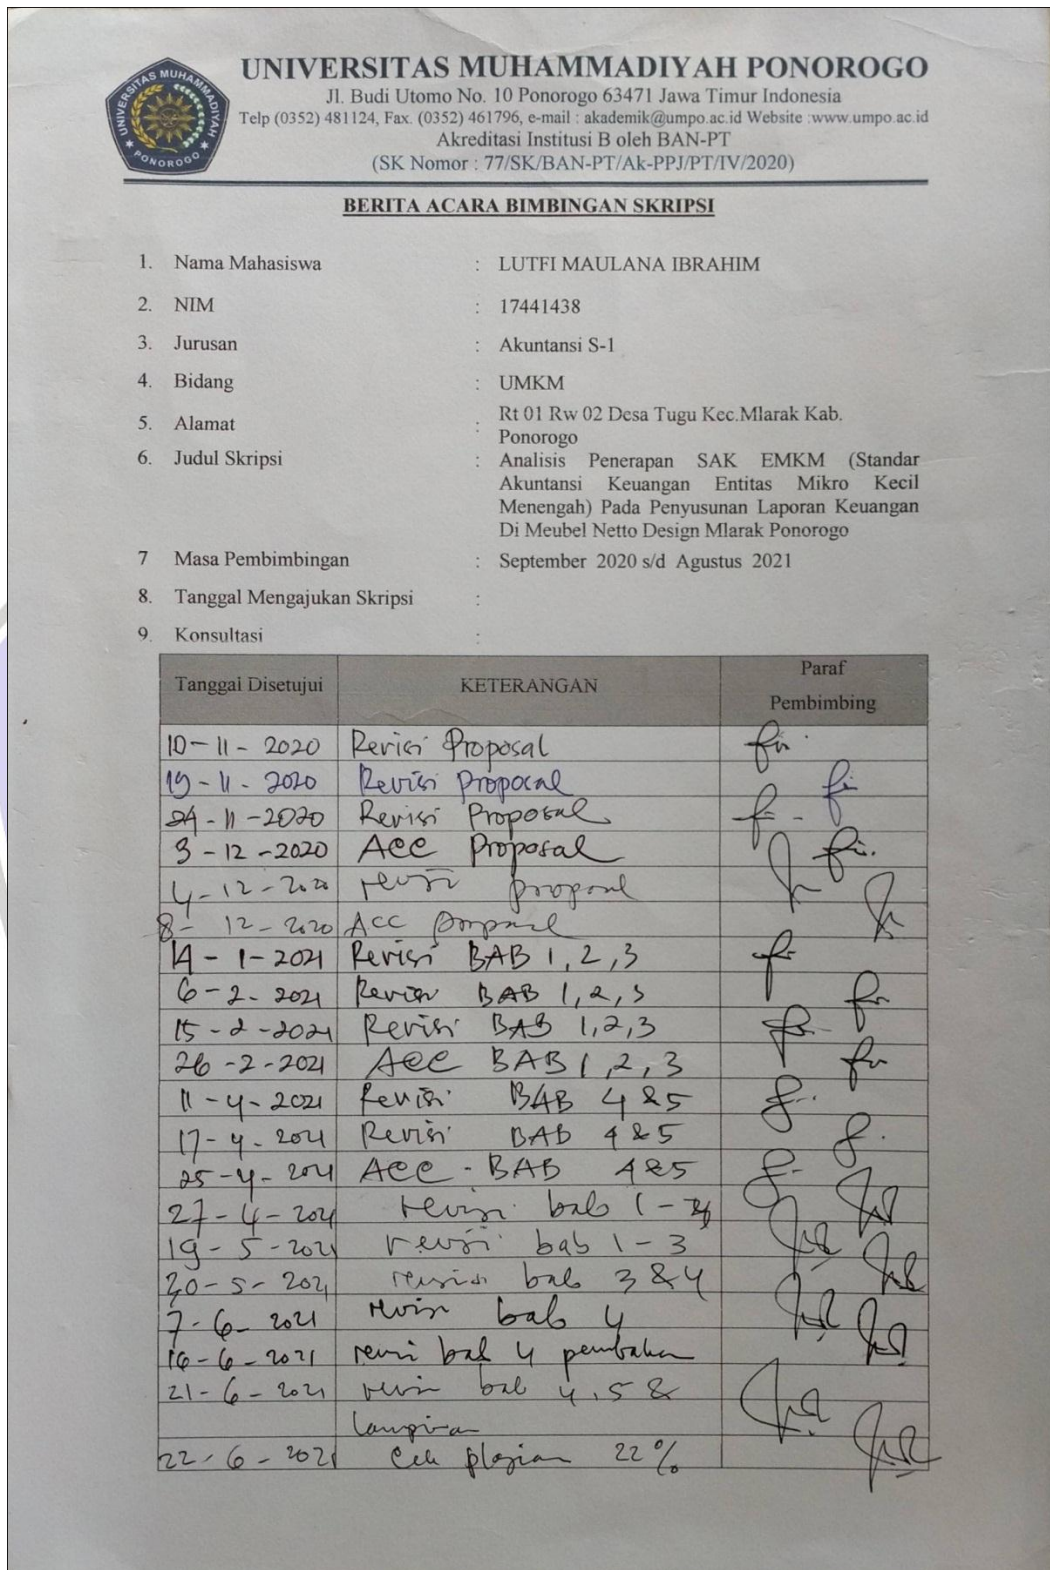 UNIVERSITAS MUHAMMADIYAH PONOROGO
Jl. Budi Utomo No. 10 Ponorogo 63471 Jawa Timur Indonesia
Telp (0352) 481124, Fax. (0352) 461796, e-mail : akademik@umpo.ac.id Website :www.umpo.ac.id
Akreditasi Institusi B oleh BAN-PT
(SK Nomor : 77/SK/BAN-PT/Ak-PPJ/PT/IV/2020)
UNIVERSITAS MUHAMMADIYAH
PONOROGO
BERITA ACARA BIMBINGAN SKRIPSI
1. Nama Mahasiswa : LUTFI MAULANA IBRAHIM
2. NIM : 17441438
3. Jurusan : Akuntansi S-1
4. Bidang : UMKM
5. Alamat : Rt 01 Rw 02 Desa Tugu Kec.Mlarak Kab.
Ponorogo
6. Judul Skripsi : Analisis Penerapan SAK EMKM (Standar
Akuntansi Keuangan Entitas Mikro Kecil
Menengah) Pada Penyusunan Laporan Keuangan
Di Meubel Netto Design Mlarak Ponorogo
7 Masa Pembimbingan : September 2020 s/d Agustus 2021
8. Tanggal Mengajukan Skripsi :
9. Konsultasi :
Tanggal Disetujui KETERANGAN Paraf
Pembimbing
10-11-2020 Revisi Proposal
19-11-2020 Revisi Proposal
24-11-2020 Revisi Proposal
3-12-2020 ACC Proposal
4-12-2020 revisi proposal
8-12-2020 Acc proposal
14-1-2021 Revisi BAB 1,2,3
6-2-2021 Revisi BAB 1,2,3
15-2-2021 Revisi BAB 1,2,3
26-2-2021 Acc BAB 1,2,3
11-4-2021 Revisi BAB 4 & 5
17-4-2021 Revisi BAB 4 & 5
25-4-2021 ACC - BAB 4 & 5
27-4-2021 revisi bab 1 -
19-5-2021 revisi bab 1-3
20-5-2021 revisi bab 3 & 4
7-6-2021 revisi bab 4
16-6-2021 revisi bab 4
21-6-2021 revisi bab 4, 5 &
lampiran
22-6-2021 Cek plagian 22%